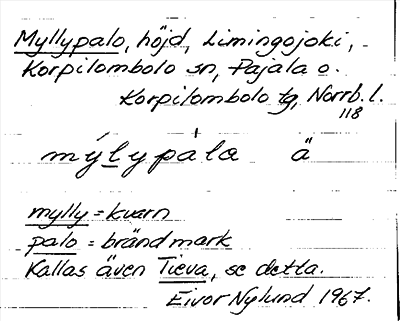 Myllypalo, höjd, Limingojoki,
Korpilombolo sn, Pajala o.
Korpilombolo tg, Norrb. l.
118
mýlypalo ä
mylly = kvarn
palo = bränd mark
Kallas även Tieva, se detta.
Eivor Nylund 1967.